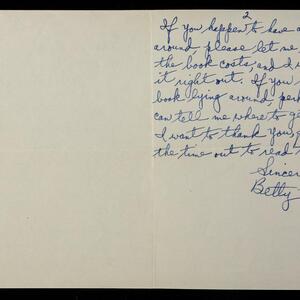 2
If you happen to have a
around, please let me
the book costs, and I
it right out. If you
book lying around, per
can tell me where to ge
I want to thank you
the time out to read
Sincer
Betty